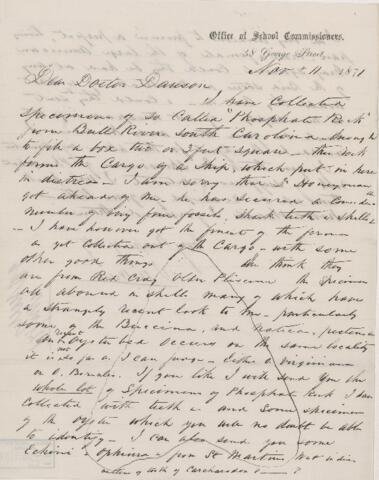 Office of School Commissioners,
58 George Street,
Nov. 11 1871
Dear Doctor Dawson,
I have Collected
specimens of So Called "Phosphate Rock"
from Bull River South Carolina enough
to fill a box two or 3 feet square — this rock
forms the Cargo of a Ship, which put in here
in distress — I am sorry that Honeyman
got ahead of me. he has secured a
number of very fine fossils. Shark teeth & shells
— I have however got the finest of the
as yet collected out of the Cargo — with some
other good things We think they
are from Red Crag Older Pliocene the
all abound in shells many of which have
a strangely recent look to me — particularly
some of the Buccina, and
An Oyster bed occurs in the same locality
it is as far as I can judge — Either O. Virginiana
or O. Borealis. If you like I will send you the
whole lot of Specimens of Phosphate Rock I have
Collected with teeth &c and some specimens
of the Oyster which you will no doubt be able
to identify — I can also send you some
Echini & Ophiura from St Martins, West Indies
of teeth of Carcharodon ?